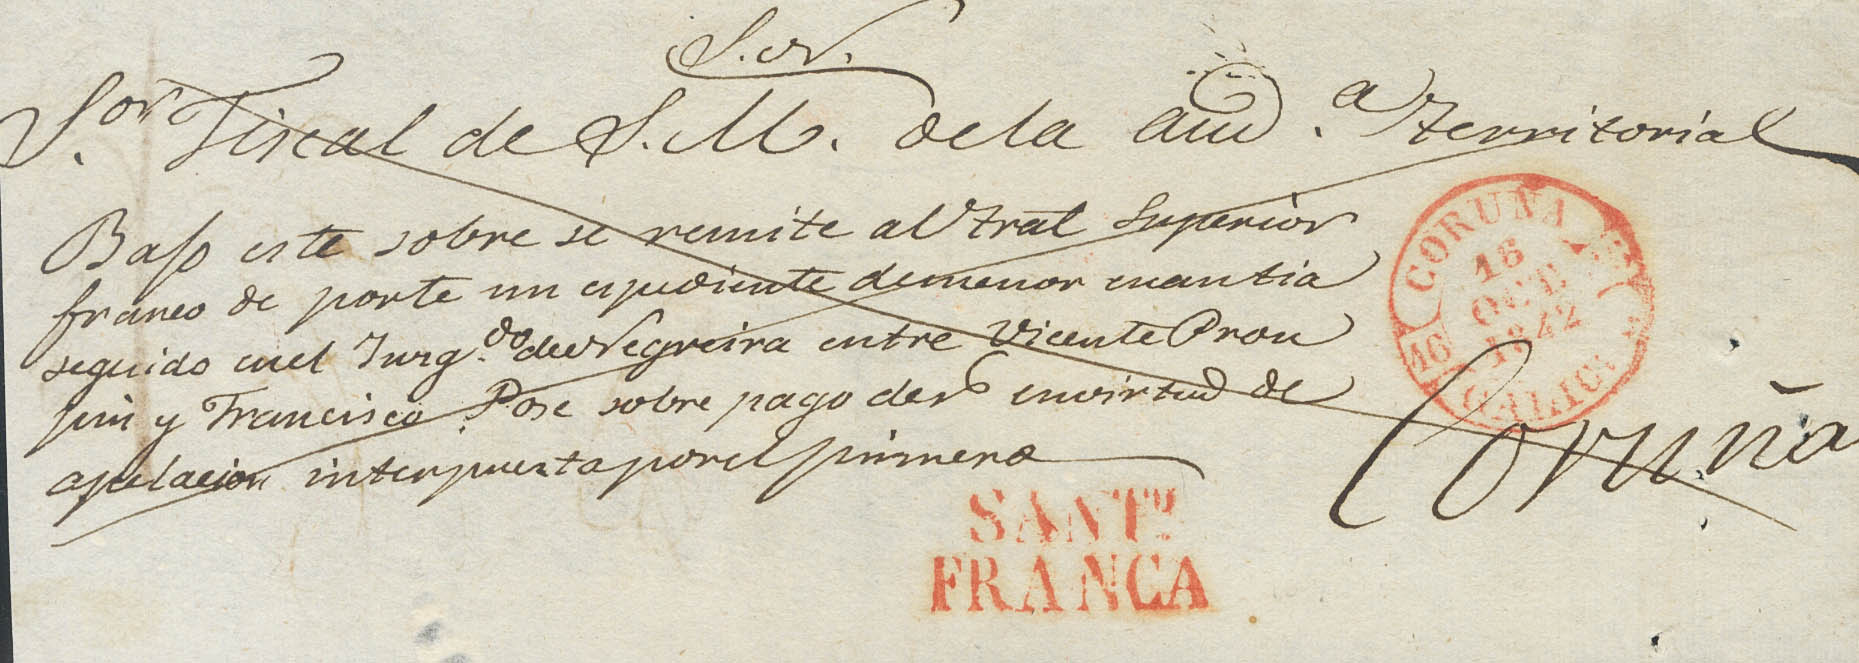 S.N.
S.or Fiscal de S.M. de la Aud.a Territorial
Bajo este sobre se remite al Tral Superior
franco de porte un espediente de menor cuantia
seguido en el Juzg.do de Negreira entre Vicente Prou
y Francisco Pose sobre pago de en virtud de
apelacion interpuesta por el primero
Coruña
CORUÑA
16
OCT.
1842
16
GALICIA
SANTº
FRANCA